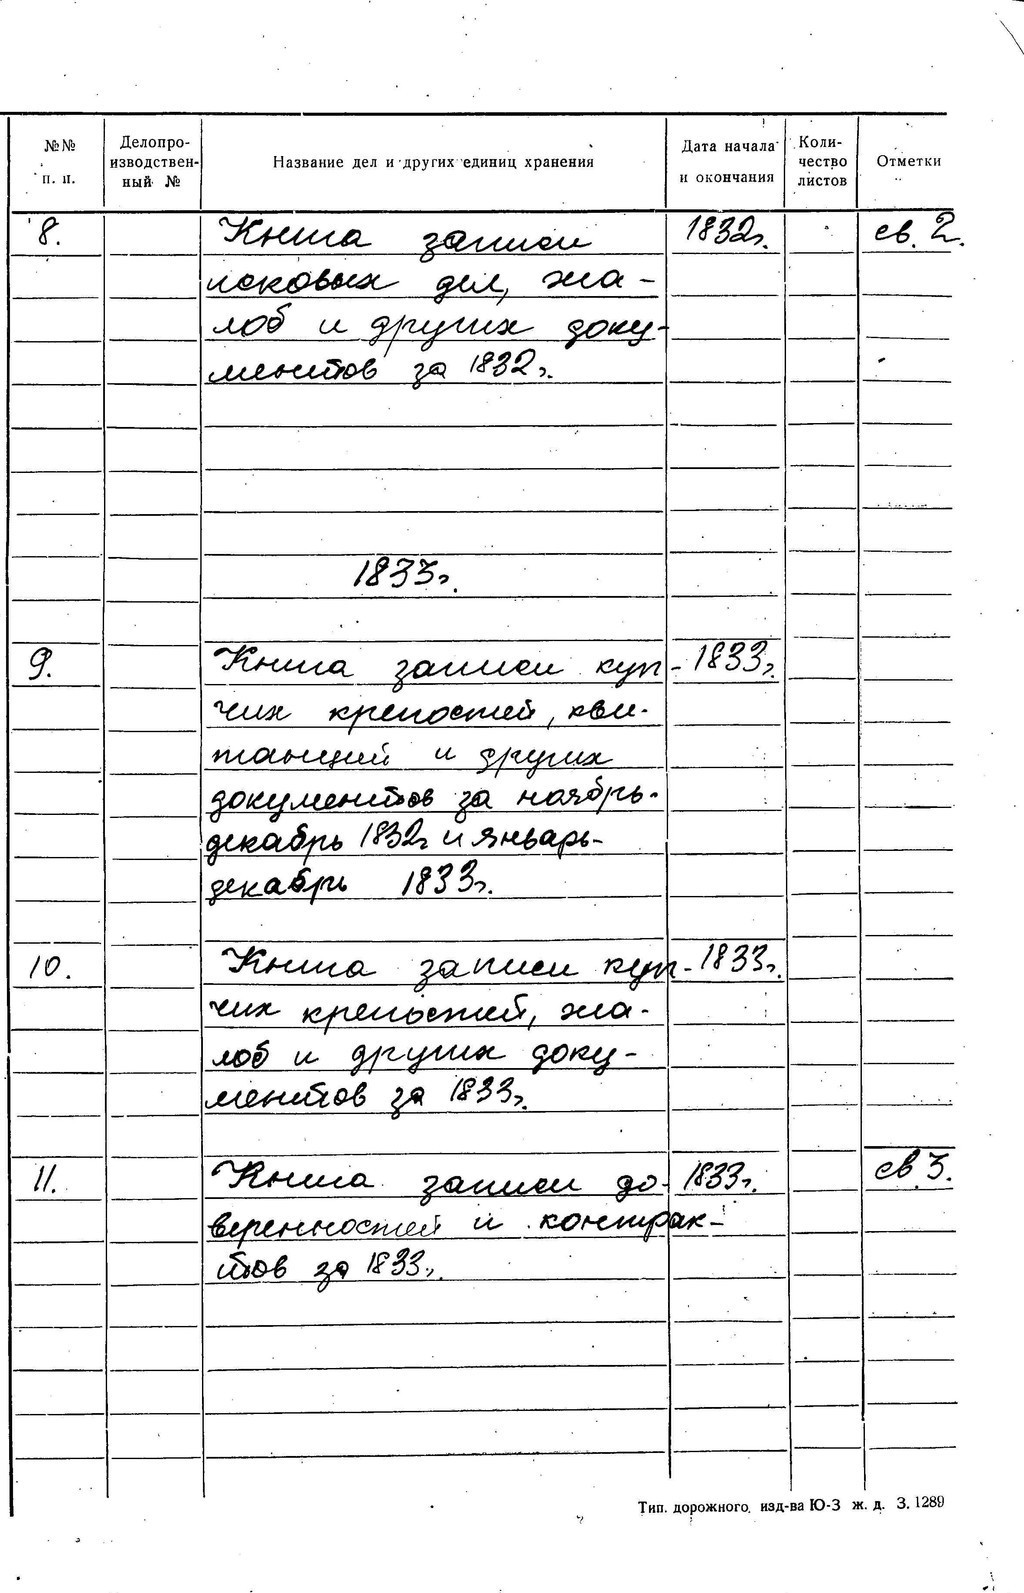 №№ п. п.
Делопро-
изводствен-
ный №
Название дел и других единиц хранения
Дата начала
и окончания
Коли-
чество
листов
Отметки
8. Книга записи 1832г. св. 2.
исковых дел, жа-
лоб и других доку-
ментов за 1832г.
1833г.
9. Книга записи куп- 1833г.
чих крепостей, кви-
танций и других
документов за ноябрь-
декабрь 1832г и январь-
декабрь 1833г.
10. Книга записи куп- 1833г.
чих крепостей, жа-
лоб и других доку-
ментов за 1833г.
11. Книга записи до- 1833г. св 3.
веренностей и контрак-
тов за 1833г.
Тип. дорожного. изд-ва Ю-З ж. д. З. 1289